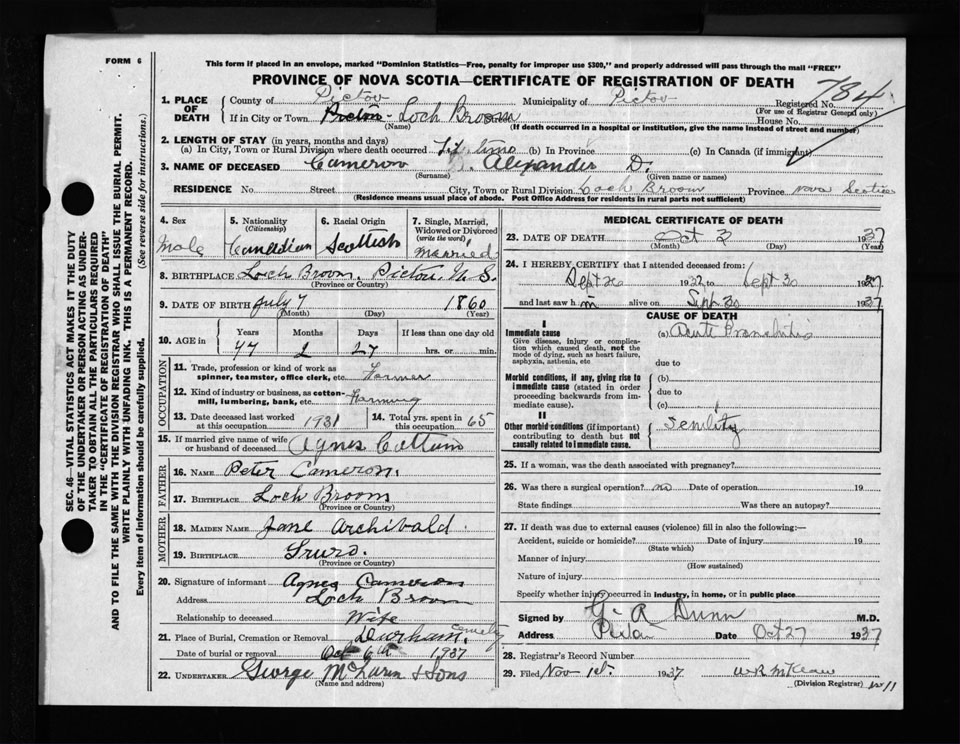 FORM 6
This form if placed in an envelope, marked "Dominion Statistics—Free, penalty for improper use $300," and properly addressed will pass through the mail "FREE"
PROVINCE OF NOVA SCOTIA—CERTIFICATE OF REGISTRATION OF DEATH
784
1. PLACE OF DEATH
County of Pictou Municipality of Pictou Registered No.
(For use of Registrar General only)
If in City or Town Pictou - Loch Broom House No.
(Name) (If death occurred in a hospital or institution, give the name instead of street and number)
2. LENGTH OF STAY (in years, months and days)
(a) In City, Town or Rural Division where death occurred (b) In Province (c) In Canada (if immigrant)
3. NAME OF DECEASED Cameron Alexander D.
(Surname) (Given name or names)
RESIDENCE No. Street City, Town or Rural Division Loch Broom Province Nova Scotia
(Residence means usual place of abode. Post Office Address for residents in rural parts not sufficient)
4. Sex Male
5. Nationality (Citizenship) Canadian
6. Racial Origin Scottish
7. Single, Married, Widowed or Divorced (write the word) Married
8. BIRTHPLACE Loch Broom, Pictou, N.S.
(Province or Country)
9. DATE OF BIRTH July 7 1860
(Month) (Day) (Year)
10. AGE in Years Months Days If less than one day old
77 2 27 hrs. or min.
OCCUPATION
11. Trade, profession or kind of work as spinner, teamster, office clerk, etc. Farmer
12. Kind of industry or business, as cotton-mill, lumbering, bank, etc. Farming
13. Date deceased last worked at this occupation 1931
14. Total yrs. spent in this occupation 65
15. If married give name of wife or husband of deceased Agnes Cottum
FATHER
16. NAME Peter Cameron.
17. BIRTHPLACE Loch Broom
(Province or Country)
MOTHER
18. MAIDEN NAME Jane Archibald
19. BIRTHPLACE Truro.
(Province or Country)
20. Signature of informant Agnes Cameron
Address Loch Broom
Relationship to deceased Wife
21. Place of Burial, Cremation or Removal Durham, Cemetery
Date of burial or removal Oct 6th 1937
22. UNDERTAKER George McLaren & Sons
(Name and address)
MEDICAL CERTIFICATE OF DEATH
23. DATE OF DEATH Oct 3 1937
(Month) (Day) (Year)
24. I HEREBY CERTIFY that I attended deceased from:
Sept 26 to Sept 30 1937
and last saw him alive on Sept 30 1937
CAUSE OF DEATH
I
Immediate cause
Give disease, injury or complication which caused death, not the mode of dying, such as heart failure, asphyxia, asthenia, etc
(a) Acute Bronchitis
due to
Morbid conditions, if any, giving rise to immediate cause (stated in order proceeding backwards from immediate cause).
(b)
due to
(c)
II
Other morbid conditions (if important) contributing to death but not causally related to immediate cause.
Senility
25. If a woman, was the death associated with pregnancy?
26. Was there a surgical operation? no Date of operation 19
State findings Was there an autopsy?
27. If death was due to external causes (violence) fill in also the following:—
Accident, suicide or homicide? Date of injury 19
(State which)
Manner of injury
(How sustained)
Nature of injury
Specify whether injury occurred in industry, in home, or in public place
Signed by G. R Dunn M.D.
Address Date Oct 27 1937
28. Registrar's Record Number
29. Filed Nov 1st 1937
(Division Registrar)
SEC. 46—VITAL STATISTICS ACT MAKES IT THE DUTY
OF THE UNDERTAKER OR PERSON ACTING AS UNDER-
TAKER TO OBTAIN ALL THE PARTICULARS REQUIRED
IN THE "CERTIFICATE OF REGISTRATION OF DEATH"
AND TO FILE THE SAME WITH THE DIVISION REGISTRAR WHO SHALL ISSUE THE BURIAL PERMIT.
WRITE PLAINLY WITH UNFADING INK. THIS IS A PERMANENT RECORD.
Every item of information should be carefully supplied. (See reverse side for instructions.)